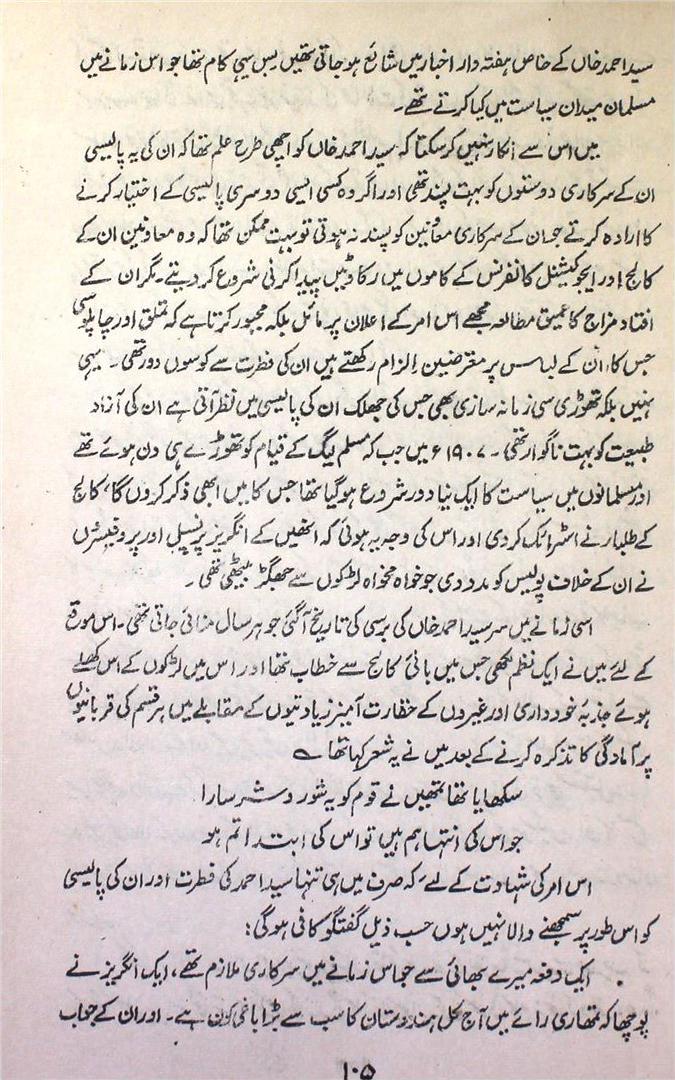 سید احمد خاں کے خاص ہفتہ دار اخبار میں شائع ہوجاتی تھیں بس یہی کام تھا جو اس زمانے میں
مسلمان میدان سیاست میں کیا کرتے تھے۔
میں اس سے انکار نہیں کرسکتا کہ سید احمد خاں کو اچھی طرح علم تھا کہ ان کی یہ پالیسی
ان کے سرکاری دوستوں کو بہت پسند تھی اور اگر وہ کسی ایسی دوسری پالیسی کے اختیار کرنے
کا ارادہ کرتے جو ان کے سرکاری معاونین کو پسند نہ ہوتی تو بہت ممکن تھا کہ وہ معاونین ان کے
کالج اور ایجوکیشنل کانفرنس کے کاموں میں رکاوٹیں پیدا کرنی شروع کردیتے۔ مگر ان کے
افتاد مزاج کا عمیق مطالعہ مجھے اس امر کے اعلان پر مائل بلکہ مجبور کرتا ہے کہ تملق اور چاپلوسی
جس کا، ان کے لباس پر معترضین الزام رکھتے ہیں ان کی فطرت سے کوسوں دور تھی۔ یہی
نہیں بلکہ تھوڑی سی زمانہ سازی بھی جس کی جھلک ان کی پالیسی میں نظر آتی ہے ان کی آزاد
طبیعت کو بہت ناگوار تھی۔ ۱۹۰۷ء میں جب کہ مسلم لیگ کے قیام کو تھوڑے ہی دن ہوئے تھے
اور مسلمانوں میں سیاست کا ایک نیا دور شروع ہوگیا تھا جس کا میں ابھی ذکر کروں گا، کالج
کے طلبار نے اسٹرائک کردی اور اس کی وجہ یہ ہوئی کہ انھیں کے انگریز پرنسپل اور پروفیسروں
نے ان کے خلاف پولیس کو مدد دی جو خواہ مخواہ لڑکوں سے جھگڑ بیٹھی تھی۔
اسی زمانے میں سر سید احمد خاں کی برسی کی تاریخ آگئی جو ہر سال منائی جاتی تھی۔ اس موقع
کے لئے میں نے ایک نظم لکھی جس میں بانیٔ کالج سے خطاب تھا اور اس میں لڑکوں کے اس کھیلے
ہوئے جذبۂ خودداری اور غیروں کے حقارت آمیز زیادتیوں کے مقابلے میں ہر قسم کی قربانیوں
پر آمادگی کا تذکرہ کرنے کے بعد میں نے یہ شعر کہا تھا ؎
سکھایا تھا تمھیں نے قوم کو یہ شور و شر سارا
جو اس کی انتہا ہم ہیں تو اس کی ابتدا تم ہو
اس امر کی شہادت کے لئے کہ صرف میں ہی تنہا سید احمد کی فطرت اور ان کی پالیسی
کو اس طور پر سمجھنے والا نہیں ہوں حسب ذیل گفتگو کافی ہوگی:
ایک دفعہ میرے بھائی سے جو اس زمانے میں سرکاری ملازم تھے، ایک انگریز نے
پوچھا کہ تمھاری رائے میں آج کل ہندوستان کا سب سے بڑا باغی کون ہے۔ اور ان کے جواب
۱۰۵